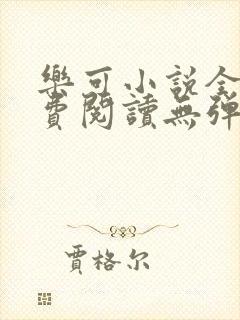 樂可小說全
費閱讀無彈
賈格尔